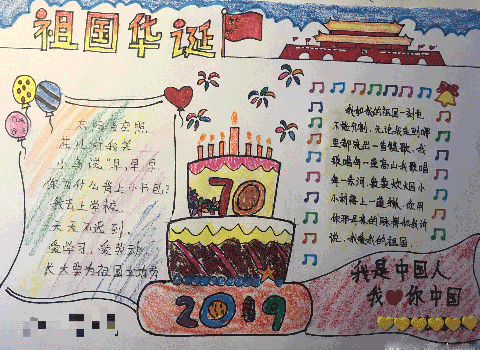 祖国华诞
太阳当空照,
花儿对我笑
小鸟说"早早早
你为什么背上小书包?
我去上学校
天天不迟到,
爱学习,爱劳动
长大要为祖国立功劳
70
2019
我和我的祖国一刻也
不能分割,无论我走到哪
里都流出一首赞歌,我
歌唱每一座高山我歌唱
每一条河,袅袅炊烟小
小村落路上一道辙,你用
你那母亲的脉搏和我诉
说,我爱我的祖国
我是中国人
我你中国